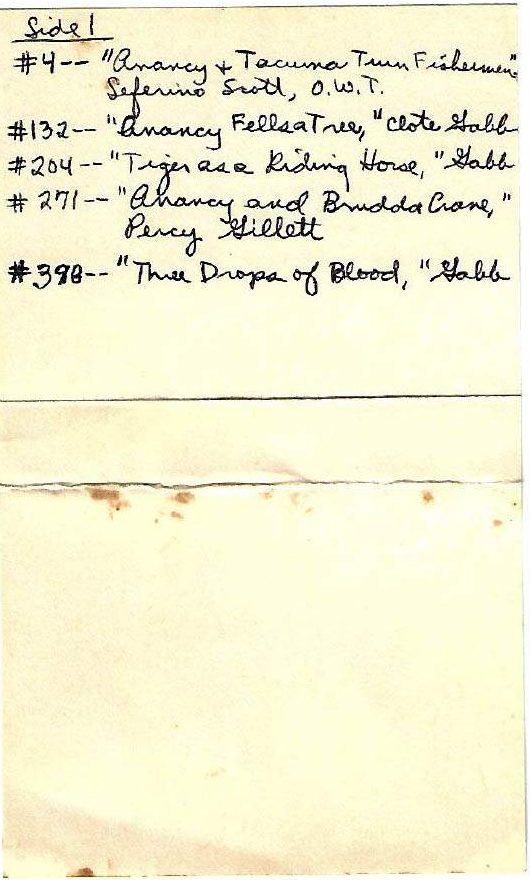 Side 1
#4-- "Anancy + Tacuma Turn Fishermen"
Seferino Scott, O.W.T.
#132-- "Anancy Fells a Tree," Clote Gabb
#204-- "Tiger as a Riding Horse," Gabb
#271-- "Anancy and Brudda Crane,"
Percy Gillett
#398-- "Three Drops of Blood," Gabb